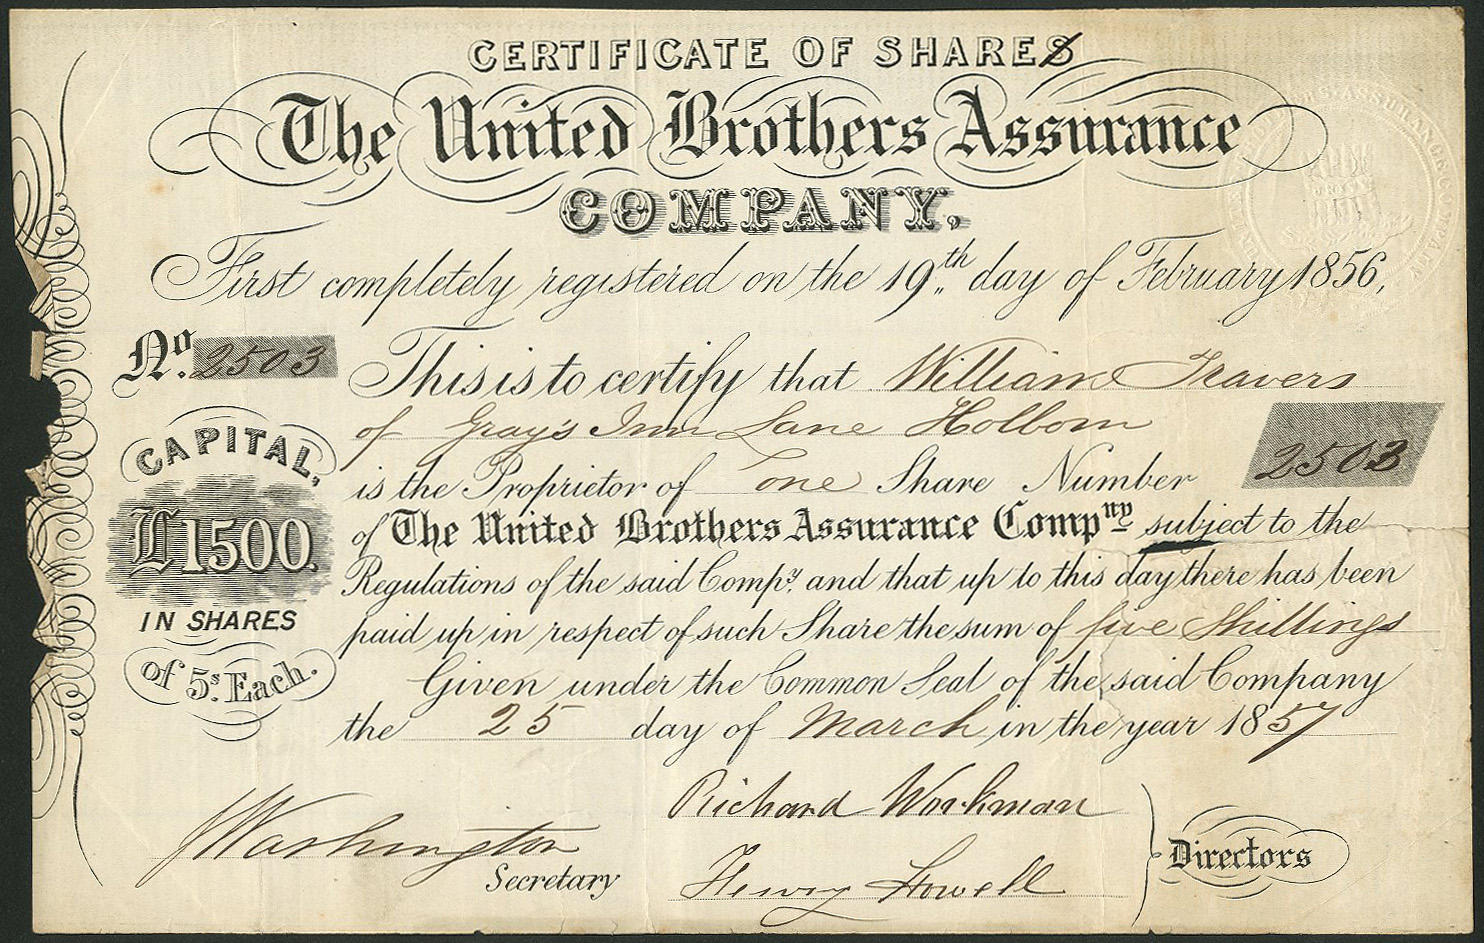 CERTIFICATE OF SHARES
The United Brothers Assurance
COMPANY.
First completely registered on the 19th day of February 1856,
No. 2503
This is to certify that William Travers
of Gray's Inn Lane Holborn
is the Proprietor of one Share Number 2503
of The United Brothers Assurance Compny subject to the
Regulations of the said Compy. and that up to this day there has been
paid up in respect of such Share the sum of five Shillings
Given under the Common Seal of the said Company
the 25 day of March in the year 1857
CAPITAL,
£1500.
IN SHARES
of 5s. Each.
J Washington
Secretary
Richard Workman
Henry Howell
Directors